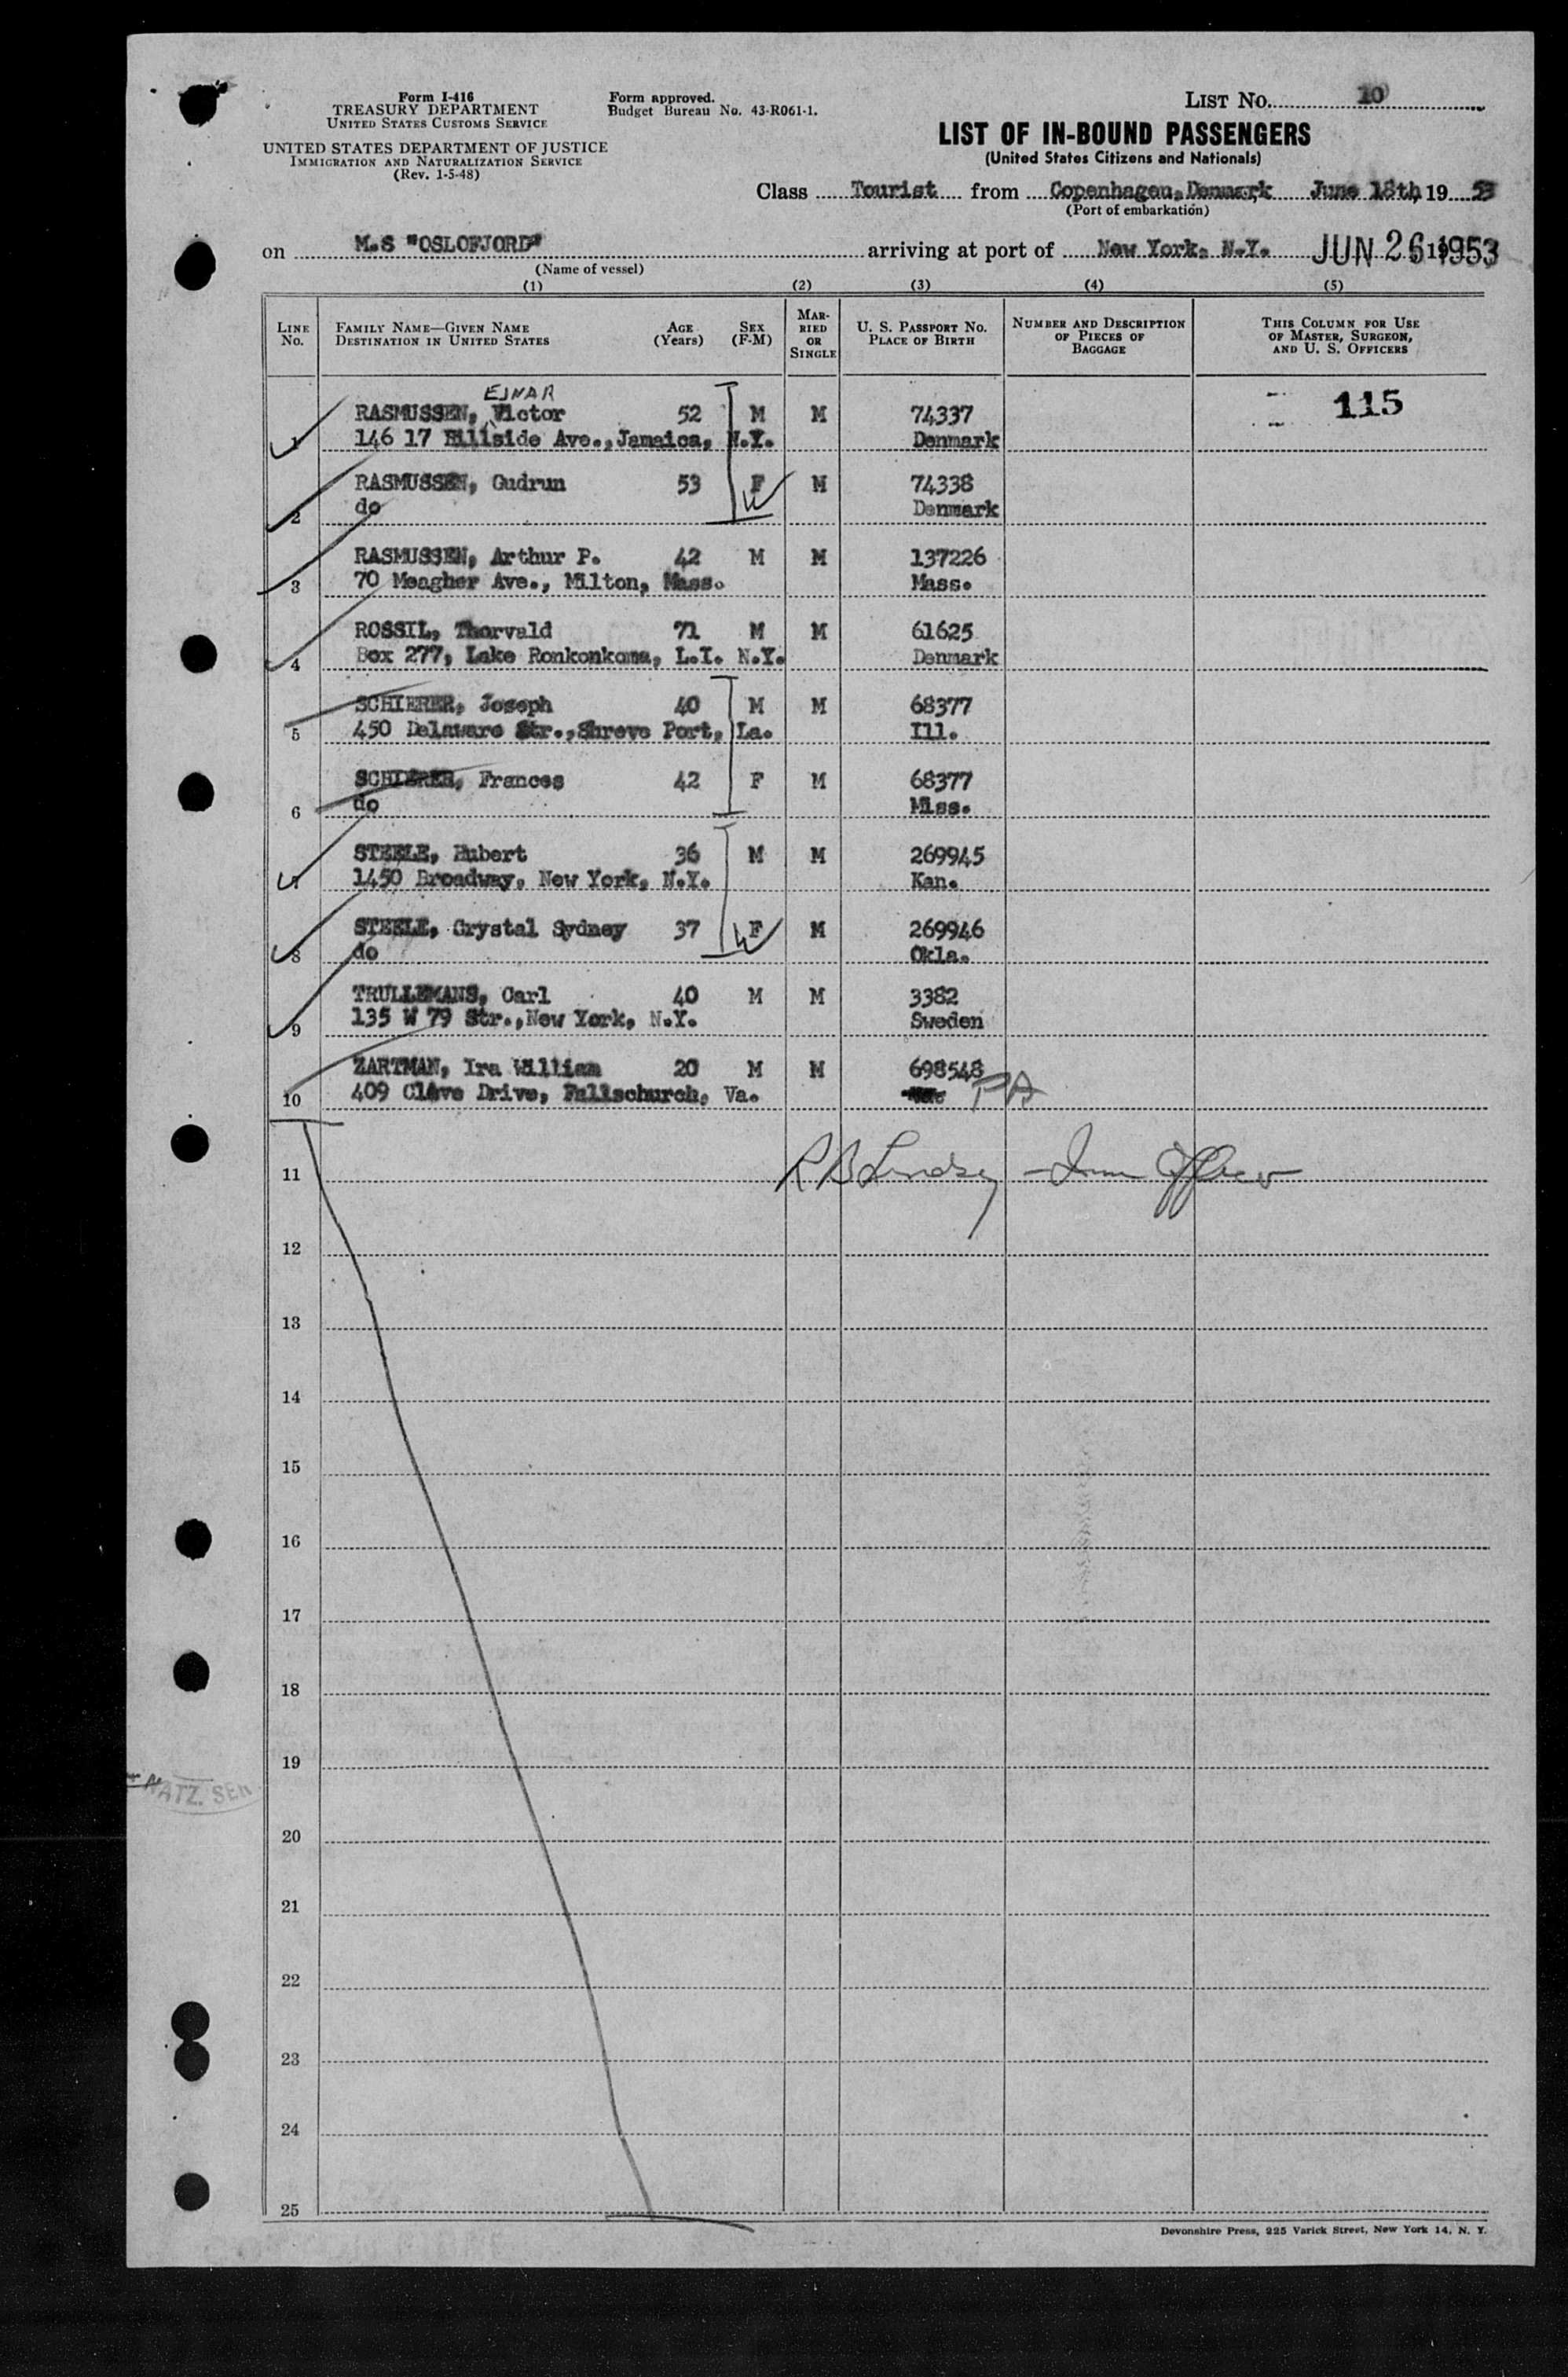 Form I-416
TREASURY DEPARTMENT
UNITED STATES CUSTOMS SERVICE
UNITED STATES DEPARTMENT OF JUSTICE
IMMIGRATION AND NATURALIZATION SERVICE
(Rev. 1-5-48)
Form approved.
Budget Bureau No. 43-R061-1.
LIST NO. 10
LIST OF IN-BOUND PASSENGERS
(United States Citizens and Nationals)
Class Tourist from Copenhagen, Denmark June 18th, 19 53
(Port of embarkation)
on M.S "OSLOFJORD" arriving at port of New York, N.Y. JUN 26 1953
(Name of vessel)
(1) (2) (3) (4) (5)
LINE NO. FAMILY NAME—GIVEN NAME DESTINATION IN UNITED STATES AGE (Years) SEX (F-M) MARRIED OR SINGLE U. S. PASSPORT NO. PLACE OF BIRTH NUMBER AND DESCRIPTION OF PIECES OF BAGGAGE THIS COLUMN FOR USE OF MASTER, SURGEON, AND U. S. OFFICERS
EJNAR
RASMUSSEN, Victor 52 M M 74337 115
1 146 17 Hillside Ave., Jamaica, N.Y. Denmark
RASMUSSEN, Gudrun 53 F W M 74338
2 do Denmark
RASMUSSEN, Arthur P. 42 M M 137226
3 70 Meagher Ave., Milton, Mass. Mass.
ROSSIL, Thorvald 71 M M 61625
4 Box 277, Lake Ronkonkoma, L.I. N.Y. Denmark
SCHIERER, Joseph 40 M M 68377
5 450 Delaware Str., Shreve Port, La. Ill.
SCHIERER, Frances 42 F M 68377
6 do Miss.
STEELE, Hubert 36 M M 269945
7 1450 Broadway, New York, N.Y. Kan.
STEELE, Crystal Sydney 37 F W M 269946
8 do Okla.
TRULLEMANS, Carl 40 M M 3382
9 135 W 79 Str., New York, N.Y. Sweden
ZARTMAN, Ira William 20 M M 698548
10 409 Cleve Drive, Fallschurch, Va. PA
11 R B Lindsey - Imm Officer
12
13
14
15
16
17
18
19
NATZ. SER
20
21
22
23
24
25
Devonshire Press, 225 Varick Street, New York 14, N. Y.